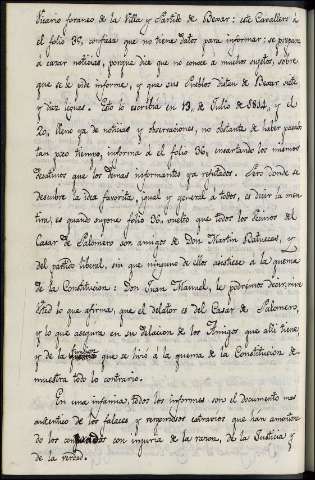 Vicario foraneo de la Villa y Partido de Bexar: este Cavallero à
el folio 35, confiesa que no tiene datos para informar: se prepara
à cazar noticias, porque dice que no conoce a muchos sujetos, sobre
que se le pide informe, y que sus Pueblos distan de Bexar siete
y diez leguas. Esto lo escribia en 19, de Julio de 1814, y el
20, lleno ya de noticias y observaciones, no obstante de haber pasado
tan poco tiempo, informa à el folio 36, ensartando los mismos
desatinos que los demas informantes ya refutados. Pero donde se
descubre la idea favorita, igual y general à todos, es decir la men
tira, es quando supone folio 36, vuelto que todos los Peinos del
Casar de Palomero son amigos de Don Martin Batuecas, y
del partido liberal, sin que ninguno de ellos asistiese à la quema
de la Constitucion: Don Juan Manuel, le podremos decir, mire
Usted lo que afirma, que el delator es del Casar de Palomero,
y lo que asegura en su delacion de los Amigos que alli tiene
y de la funcion que se hizo à la quema de la Constitucion de
muestra todo lo contrario.
En una infamia, todos los informes son el documento mas
autentico de los falaces y vergonzosos estravios que han amonton
do los con con injuria de la razon, de la Justicia y
de la verdad.